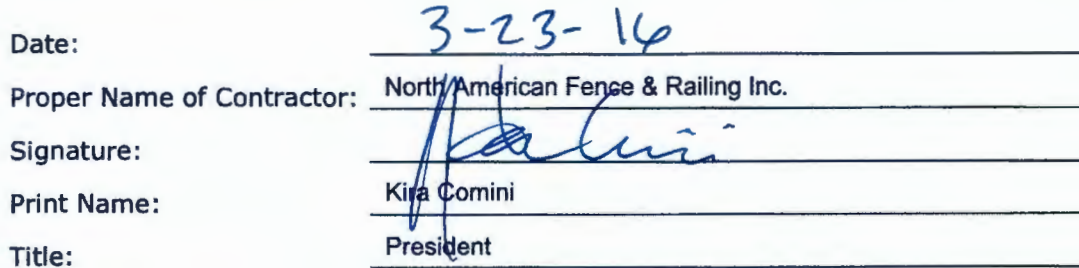 Date: 3-23-16
Proper Name of Contractor: North American Fence & Railing Inc.
Signature: Kira Comini
Print Name: Kira Comini
Title: President